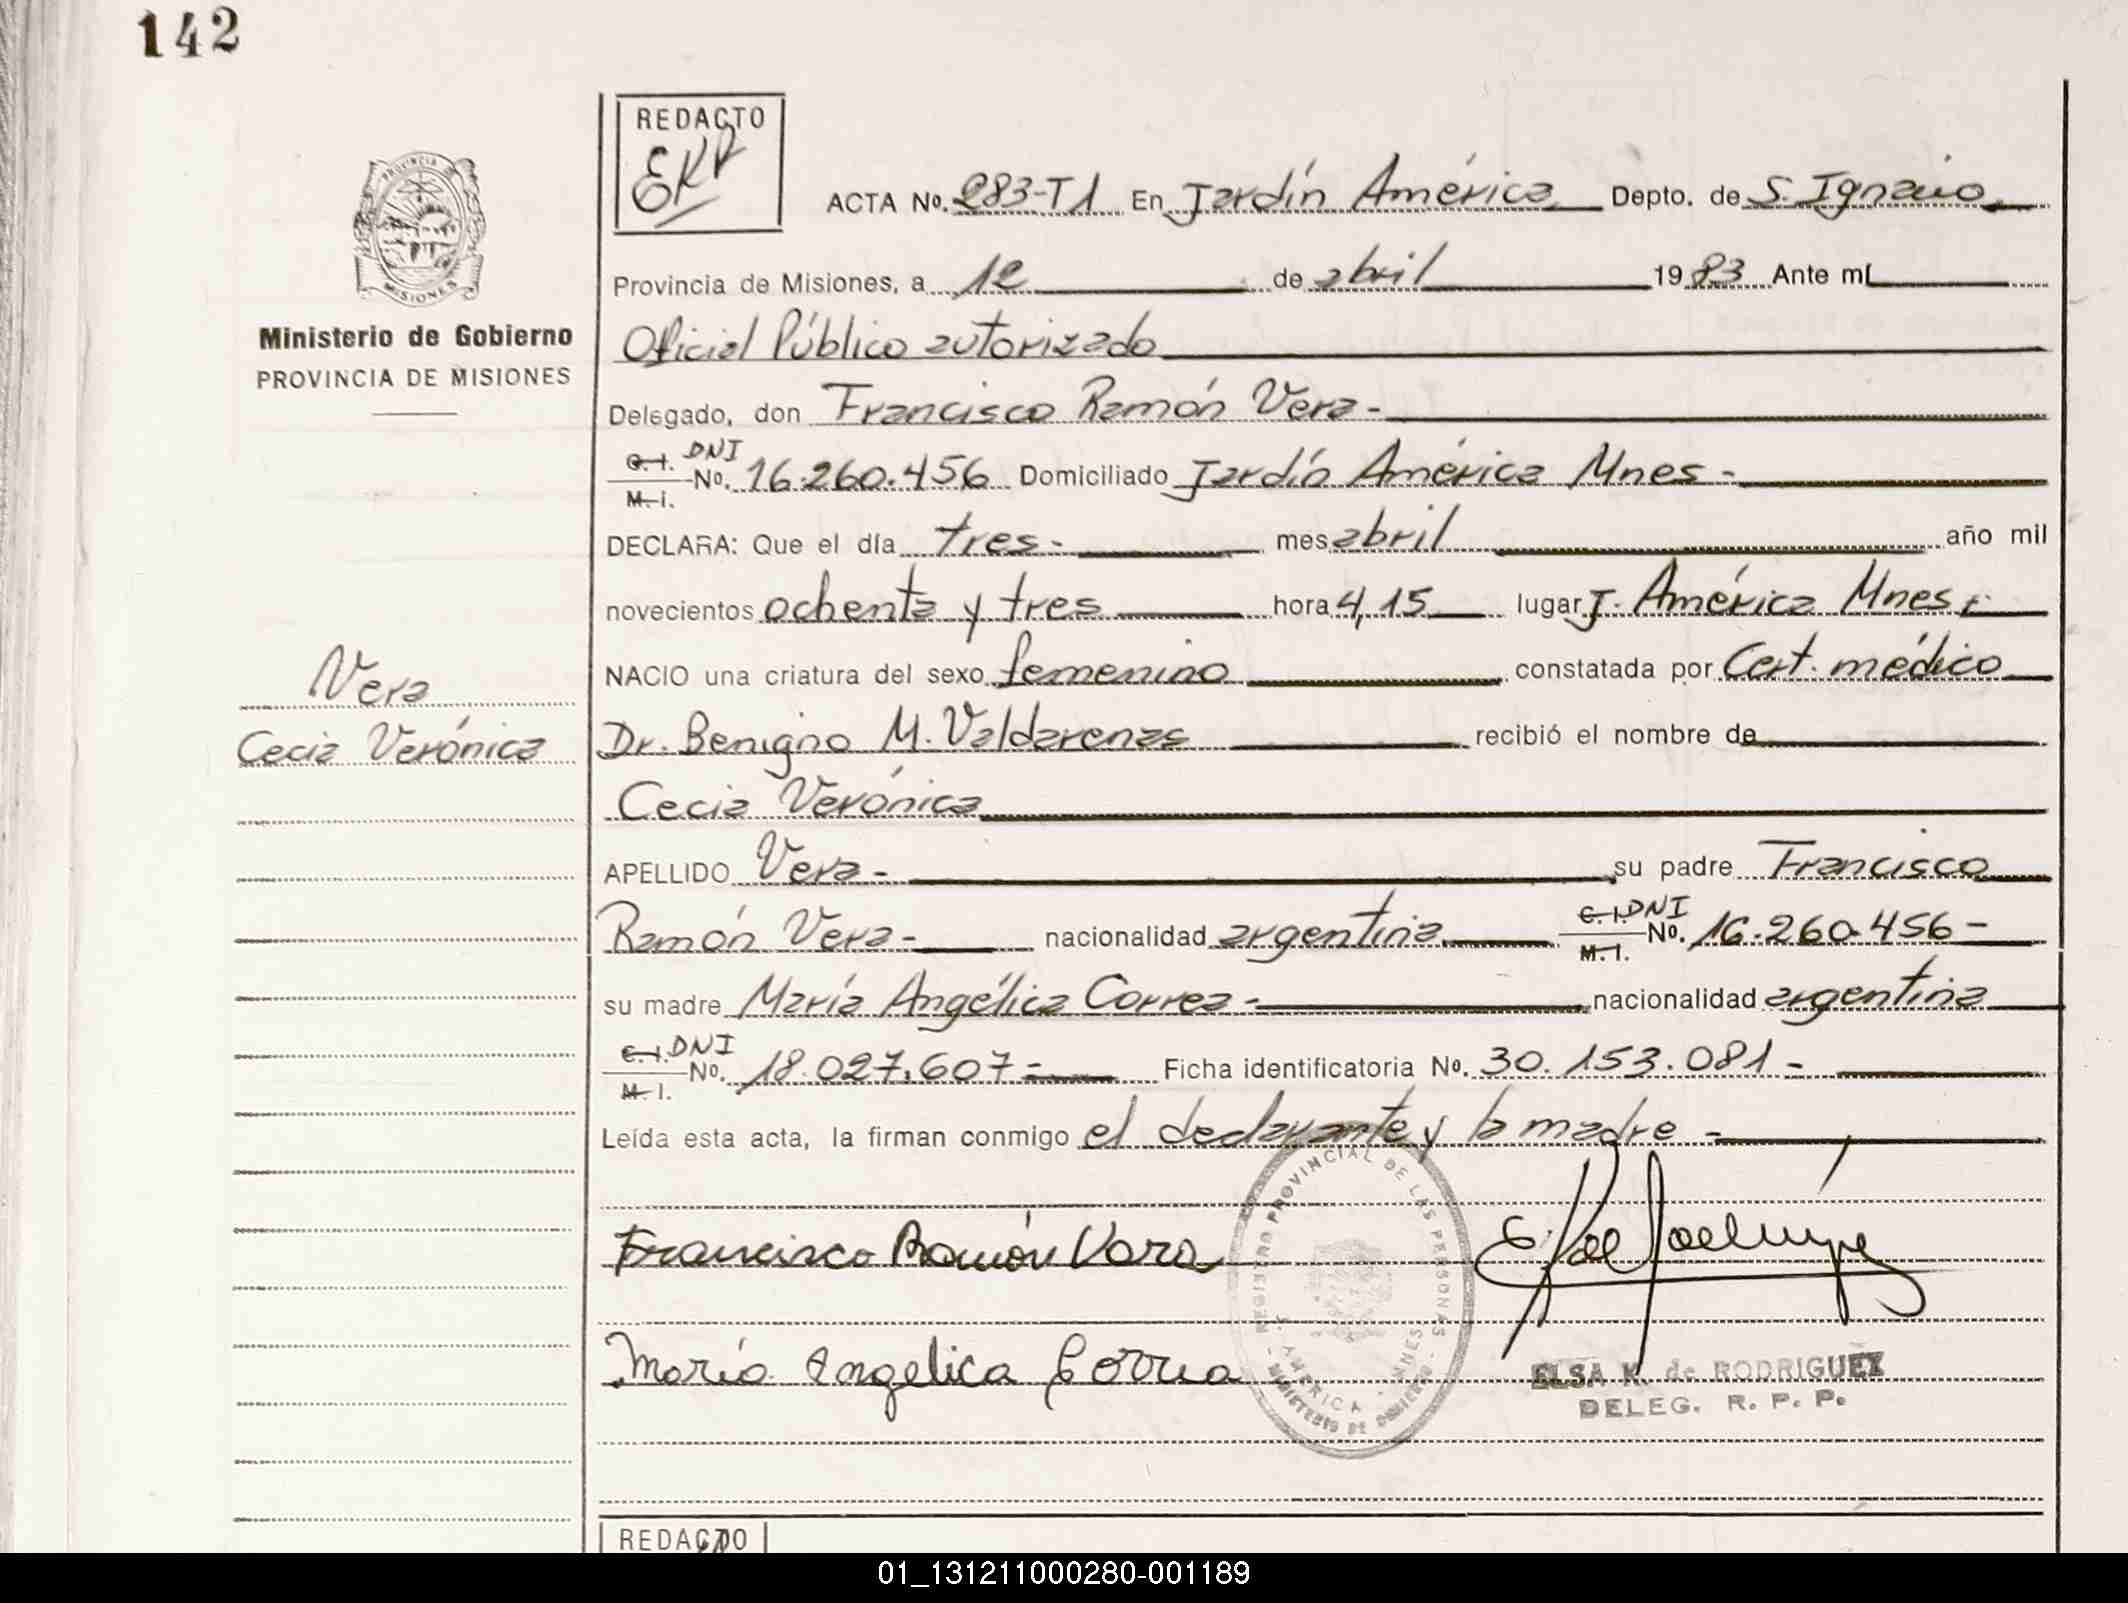 142
REDACTO
EKR
ACTA No. 283-T1 En Jardín América Depto. de S. Ignacio
Provincia de Misiones, a 12 de abril 1983 Ante mí
Ministerio de Gobierno
PROVINCIA DE MISIONES
Oficial Público autorizado
Delegado, don Francisco Ramón Vera-
C.I. DNI
M.I. No. 16.260.456 Domiciliado Jardín América Mnes-
DECLARA: Que el día tres- mes abril año mil
novecientos ochenta y tres hora 4,15 lugar J. América Mnes,
NACIO una criatura del sexo femenino constatada por Cert. médico
Vera
Cecia Verónica
Dr. Benigno M. Valdarenas recibió el nombre de
Cecia Verónica
APELLIDO Vera- su padre Francisco
Ramón Vera- nacionalidad argentina C.I. DNI M.I. No. 16.260.456-
su madre María Angélica Correa- nacionalidad argentina
C.I. DNI M.I. No. 18.027.607- Ficha identificatoria No. 30.153.081-
Leída esta acta, la firman conmigo el declarante y la madre-
Francisco Ramón Vera
María Angelica Correa
REGISTRO PROVINCIAL DE LAS PERSONAS
MINISTERIO DE GOBIERNO
AMERICA - MNES
ELSA K. de RODRIGUEZ
DELEG. R. P. P.
REDACTO
01_131211000280-001189